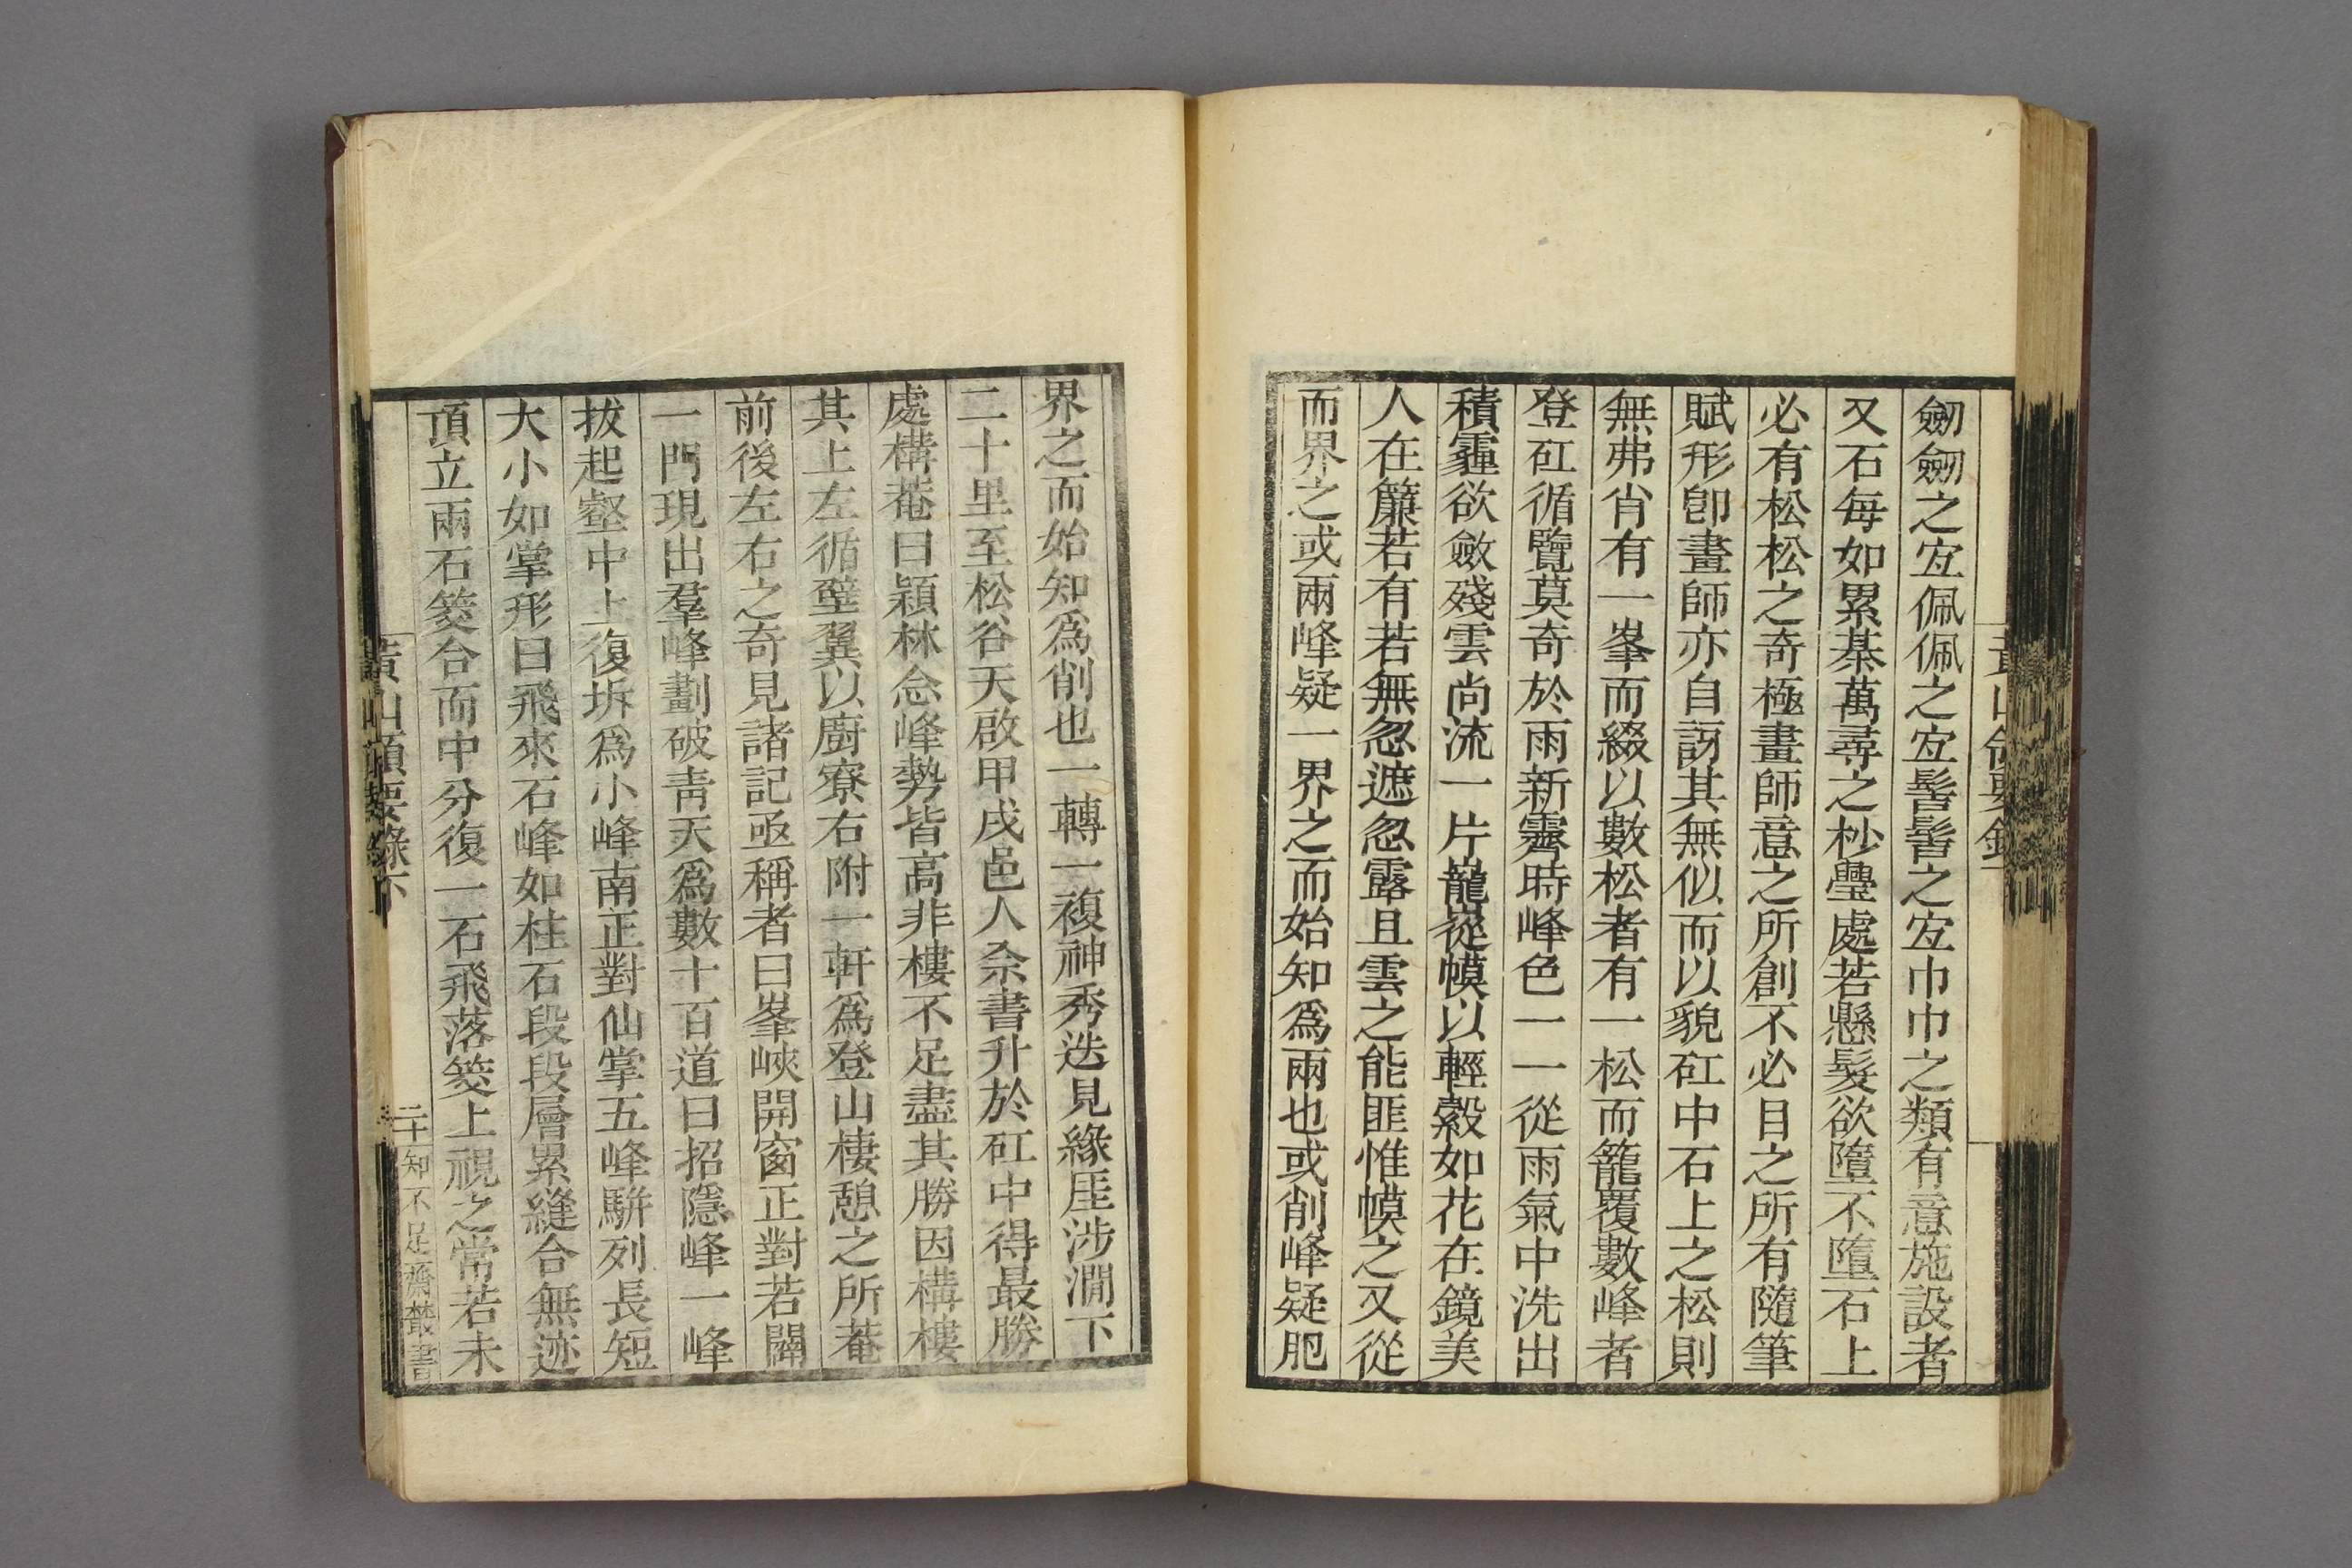 劒劒之宐佩佩之宐髻髻之宐巾巾之類有意施設者
又石每如累棊萬尋之杪疊處若懸髮欲墮不墮石上
必有松松之奇極畫師意之所創不必目之所有隨筆
賦形卽畫師亦自訝其無似而以貌矼中石上之松則
無弗肖有一峯而綴以數松者有一松而籠覆數峰者
登矼循覽莫奇於雨新霽時峰色一一從雨氣中洗出
積霾欲斂殘雲尚流一片巃嵸幙以輕縠如花在鏡美
人在簾若有若無忽遮忽露且雲之能匪惟幙之又從
而界之或兩峰疑一界之而始知爲兩也或削峰疑肥
界之而始知爲削也一轉一複神秀迭見緣厓涉澗下
二十里至松谷天啟甲戌邑人佘書升於矼中得最勝
處構菴曰潁林念峰勢皆高非樓不足盡其勝因構樓
其上左循壁翼以廚寮右附一軒爲登山棲憩之所菴
前後左右之奇見諸記亟稱者曰峯峽開窗正對若闢
一門現出羣峰劃破靑天爲數十百道曰招隱峰一峰
拔起壑中上復坼爲小峰南正對仙掌五峰騈列長短
大小如掌形曰飛來石峰如柱石段段層累縫合無迹
頂立兩石筊合而中分復一石飛落筊上視之常若未
黃山領要錄下
二十
知不足齋叢書